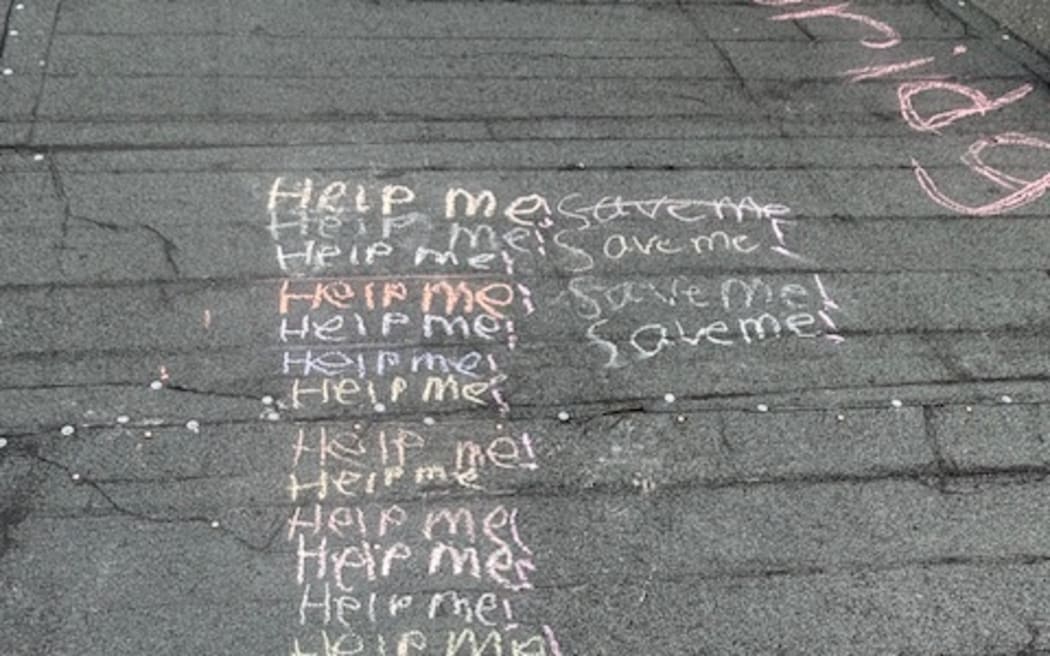 Help me save me
Help me! Save me!
Help me!
Help me! Save me!
Help me! Save me!
Help me!
Help me!
Help me!
Help me
Help me!
Help me!
Help me!
Help me!